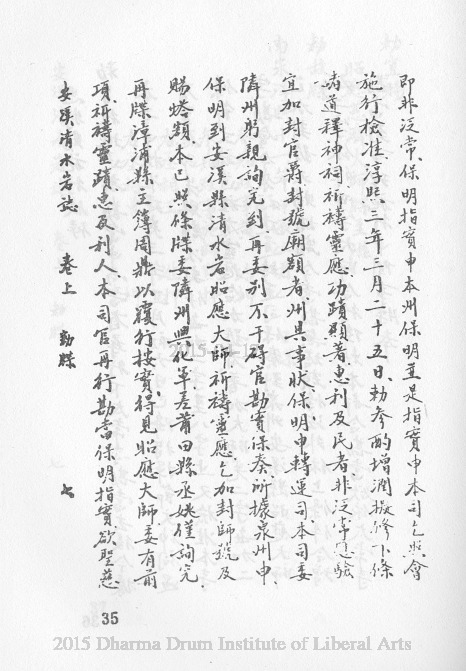 即非泛常保明指實申本州保明並是指實申本司乞照會
施行檢准淳熙三年三月二十五日勅參酌增潤擬修下條
諸道釋神祠祈禱靈應功蹟顯著惠利及民者非泛常應驗
宜加封官爵封號廟額者州具事狀保明申轉運司本司委
隣州躬親詢究到再委別不干碍官勘實保奏所據泉州申
保明到安溪縣清水岩昭應大師祈禱靈應乞加封師號及
賜塔額本已照條牒委隣州興化軍差莆田縣丞姚僅詢究
再牒漳浦縣主簿周鼎以覆行按實得見昭應大師委有前
項祈禱靈蹟惠及利人本司官再行勘當保明指實欲聖慈
安溪清水岩誌 卷上 勅牒 七
35
2015 Dharma Drum Institute of Liberal Arts